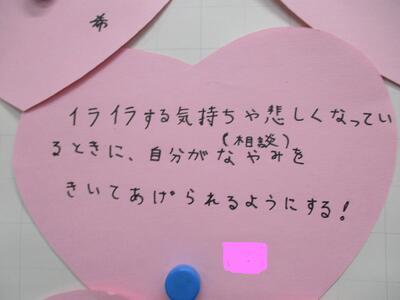 希
イライラする気持ちや悲しくなってい
るときに、自分がなやみを
(相談)
きいてあげられるようにする!